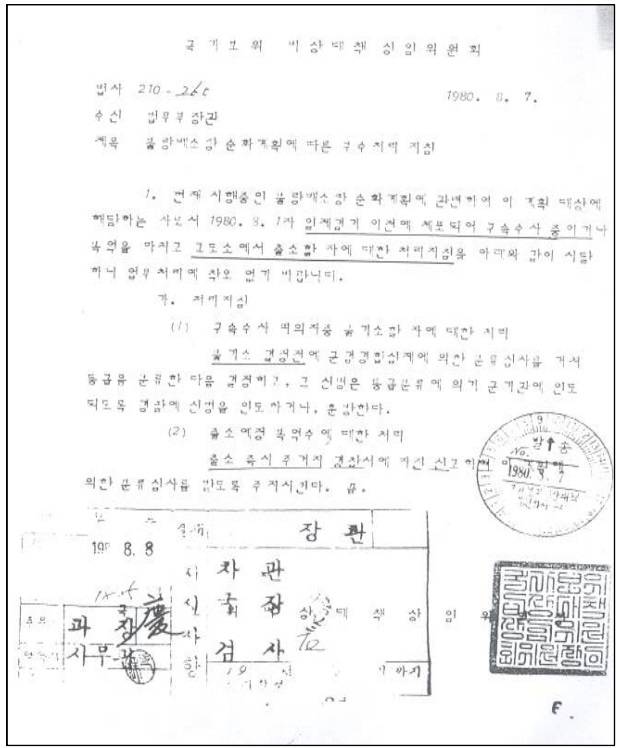 국가보위 비상대책 상임위원회
법사 210-265
1980. 8. 7.
수신 법무부장관
제목 불량배소탕 순화계획에 따른 구수처리 지침
1. 현재 시행중인 불량배소탕 순화계획에 관련하여 이 계획 대상에
해당하는 자로서 1980. 8. 1자 일제검거 이전에 체포되어 구속수사 중이거나
복역을 마치고 교도소에서 출소할 자에 대한 처리지침을 아래와 같이 시달
하니 업무처리에 착오 없기 바랍니다.
가. 처리지침
(1) 구속수사 피의자중 불기소할 자에 대한 처리
불기소 결정전에 군검경합심제에 의한 분류심사를 거쳐
등급을 분류한 다음 결정하고, 그 신병은 등급분류에 의거 군기관에 인도
되도록 경찰에 신병을 인도하거나, 훈방한다.
(2) 출소예정 복역수에 대한 처리
출소 즉시 주거지 경찰서에 자진 신고하여
의한 분류심사를 받도록 주지시킨다. 끝.
발송
No.
1980. 8. 7
198 8. 8
장관
차관
국장
검사
과장
사무관
상 대 책 상 임 위
까지